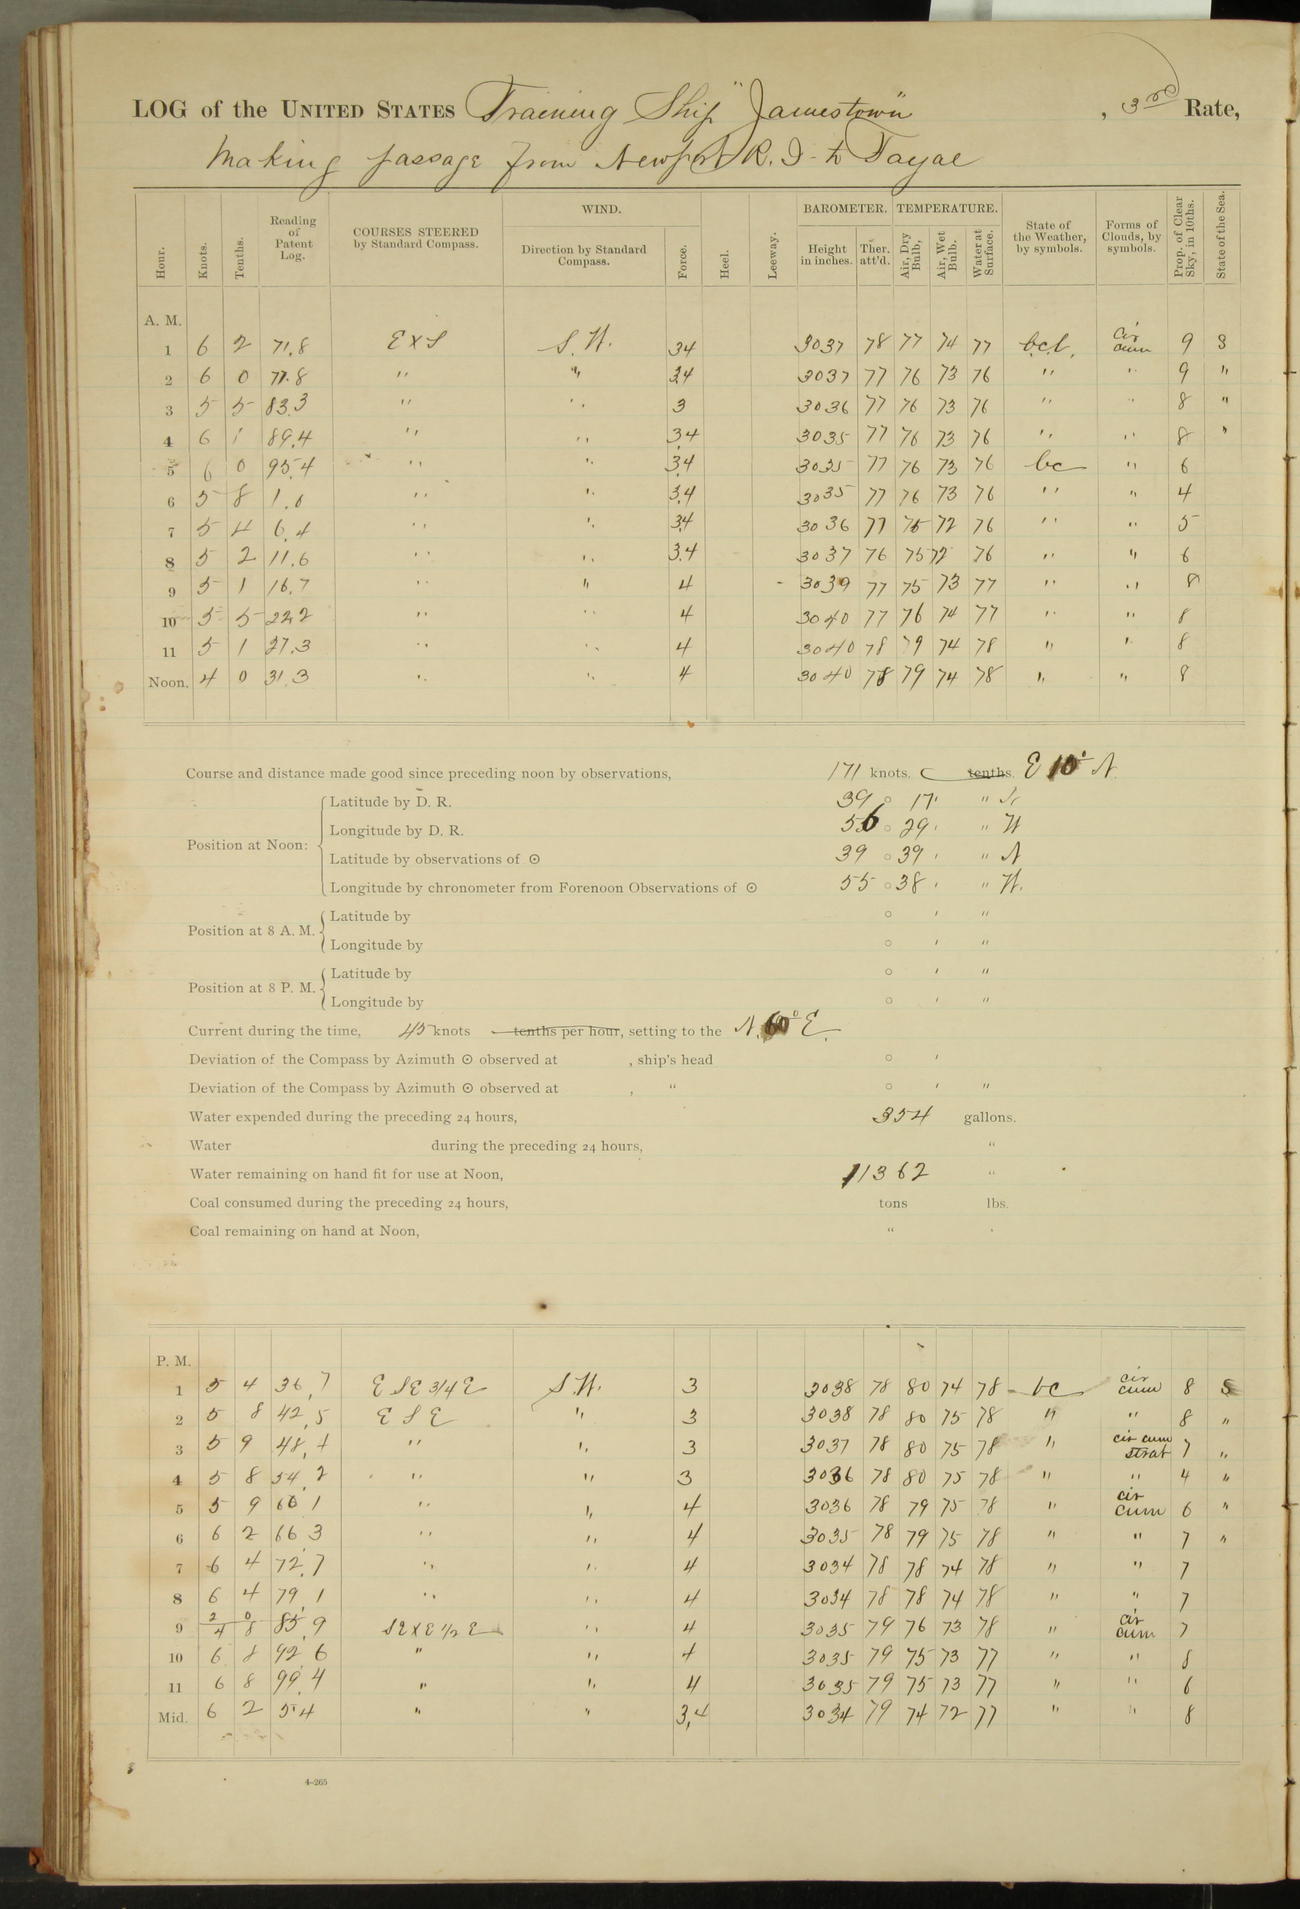 LOG of the UNITED STATES Training Ship "Jamestown" , 3rd Rate,
Making passage from Newport R. I. to Fayal
Hour. Knots. Tenths. Reading of Patent Log. COURSES STEERED by Standard Compass. WIND. Direction by Standard Compass. Force. Heel. Leeway. BAROMETER. Height in inches. Ther. att'd. TEMPERATURE. Air, Dry Bulb, Air, Wet Bulb. Water at Surface. State of the Weather, by symbols. Forms of Clouds, by symbols. Prop. of Clear Sky, in 10ths. State of the Sea.
A. M.
1 6 2 71.8 E x S S. W. 34 3037 78 77 74 77 bcl. cir cum 9 S
2 6 0 77.8 " " 34 3037 77 76 73 76 " " 9 "
3 5 5 83.3 " " 3 3036 77 76 73 76 " " 8 "
4 6 1 89.4 " " 3.4 3035 77 76 73 76 " " 8 "
5 6 0 95.4 " " 3.4 3035 77 76 73 76 bc " 6
6 5 8 1.0 " " 3.4 3035 77 76 73 76 " " 4
7 5 4 6.4 " " 3.4 3036 77 75 72 76 " " 5
8 5 2 11.6 " " 3.4 3037 76 75 72 76 " " 6
9 5 1 16.7 " " 4 3039 77 75 73 77 " " 8
10 5 5 22.2 " " 4 3040 77 76 74 77 " " 8
11 5 1 27.3 " " 4 3040 78 79 74 78 " " 8
Noon. 4 0 31.3 " " 4 3040 78 79 74 78 " " 8
Course and distance made good since preceding noon by observations, 171 knots. tenths. E 10° N
Position at Noon: Latitude by D. R. 39 ° 17 ' " N
Longitude by D. R. 56 ° 29 ' " W
Latitude by observations of ☉ 39 ° 39 ' " N
Longitude by chronometer from Forenoon Observations of ☉ 55 ° 38 ' " W.
Position at 8 A. M. Latitude by ° ' "
Longitude by ° ' "
Position at 8 P. M. Latitude by ° ' "
Longitude by ° ' "
Current during the time, 45 knots tenths per hour, setting to the N. 60° E.
Deviation of the Compass by Azimuth ☉ observed at , ship's head ° '
Deviation of the Compass by Azimuth ☉ observed at , " ° ' "
Water expended during the preceding 24 hours, 354 gallons.
Water during the preceding 24 hours, "
Water remaining on hand fit for use at Noon, 11362 "
Coal consumed during the preceding 24 hours, tons lbs.
Coal remaining on hand at Noon, " "
P. M.
1 5 4 36.7 E S E 3/4 E S. W. 3 3038 78 80 74 78 bc cir cum 8 S
2 5 8 42.5 E S E " 3 3038 78 80 75 78 " " 8 "
3 5 9 48.4 " " 3 3037 78 80 75 78 " cir cum strat 7 "
4 5 8 54.2 " " 3 3036 78 80 75 78 " " 4 "
5 5 9 60.1 " " 4 3036 78 79 75 78 " cir cum 6 "
6 6 2 66.3 " " 4 3035 78 79 75 78 " " 7 "
7 6 4 72.7 " " 4 3034 78 78 74 78 " " 7
8 6 4 79.1 " " 4 3034 78 78 74 78 " " 7
9 2 0 4 8 85.9 S E x E 1/2 E " 4 3035 79 76 73 78 " cir cum 7
10 6 8 92.6 " " 4 3035 79 75 73 77 " " 8
11 6 8 99.4 " " 4 3035 79 75 73 77 " " 6
Mid. 6 2 5.4 " " 3.4 3034 79 74 72 77 " " 8
4-265